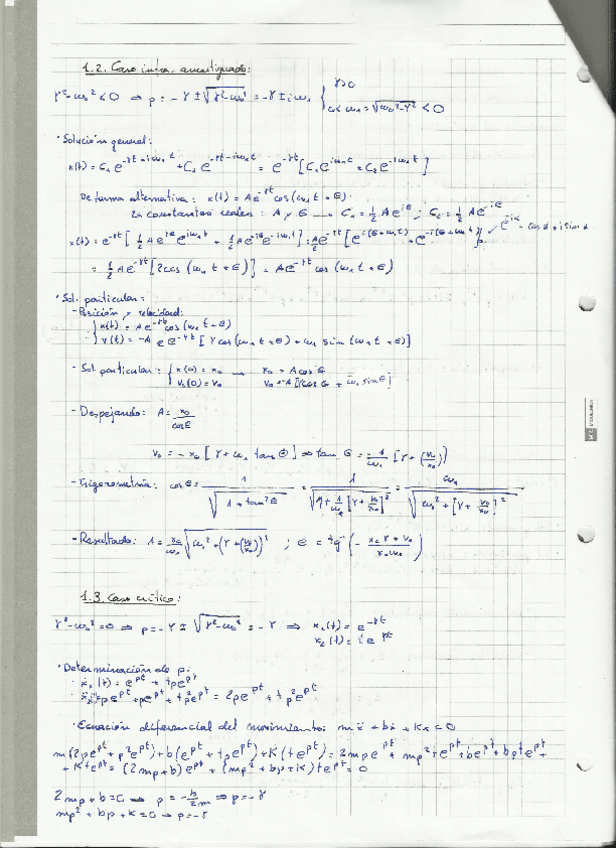 1.2. Caso infra-amortiguado:
γ²-ω₀² < 0 ⇒ p = -γ ± √(γ²-ω₀²) = -γ ± iω₁ { γ>0
ω₁ = √(ω₀²-γ²) < 0
· Solución general:
x(t) = C₁ e^(-γt+iω₁t) + C₂ e^(-γt-iω₁t) = e^(-γt) [C₁ e^(iω₁t) + C₂ e^(-iω₁t)]
De forma alternativa: x(t) = A e^(-γt) cos(ω₁t+θ)
2 constantes reales: A y θ → C₁ = ½ A e^(iθ) ; C₂ = ½ A e^(-iθ)
x(t) = e^(-γt) [½ A e^(iθ) e^(iω₁t) + ½ A e^(-iθ) e^(-iω₁t)] = ½ A e^(-γt) [e^(i(θ+ω₁t)) + e^(-i(θ+ω₁t))] ✓ e^(iα) = cos α + i sin α
= ½ A e^(-γt) [2 cos(ω₁t+θ)] = A e^(-γt) cos(ω₁t+θ)
· Sol. particular:
- Posición y velocidad:
{ x(t) = A e^(-γt) cos(ω₁t+θ)
v(t) = -A e^(-γt) [γ cos(ω₁t+θ) + ω₁ sin(ω₁t+θ)]
- Sol. particular: { x(0) = x₀ → x₀ = A cos θ
v(0) = v₀ v₀ = -A [γ cos θ + ω₁ sin θ]
- Despejando: A = x₀/cos θ
v₀ = -x₀ [γ + ω₁ tan θ] ⇒ tan θ = -1/ω₁ [γ + (v₀/x₀)]
- Trigonometría: cos θ = 1/√(1+tan²θ) = 1/√(1+1/ω₁² [γ+v₀/x₀]²) = ω₁/√(ω₁²+[γ+v₀/x₀]²)
- Resultado: A = x₀/ω₁ √(ω₁²+(γ+(v₀/x₀))²) ; θ = tg⁻¹(-(x₀γ+v₀)/(x₀ω₁))
1.3. Caso crítico:
γ²-ω₀² = 0 ⇒ p = -γ ± √(γ²-ω₀²) = -γ ⇒ x₁(t) = e^(-γt)
x₂(t) = t e^(pt)
· Determinación de p:
· ẋ₂(t) = e^(pt) + t p e^(pt)
· ẍ₂ = p e^(pt) + p e^(pt) + t p² e^(pt) = 2p e^(pt) + t p² e^(pt)
· Ecuación diferencial del movimiento: mẍ + bẋ + Kx = 0
m(2p e^(pt) + p² e^(pt)) + b(e^(pt) + t p e^(pt)) + K(t e^(pt)) = 2mp e^(pt) + mp² t e^(pt) + b e^(pt) + bpt e^(pt) +
+ K t e^(pt) = (2mp+b) e^(pt) + (mp²+bp+K) t e^(pt) = 0
2mp+b = 0 → p = -b/2m ⇒ p = -γ
mp²+bp+K = 0 → p = -γ